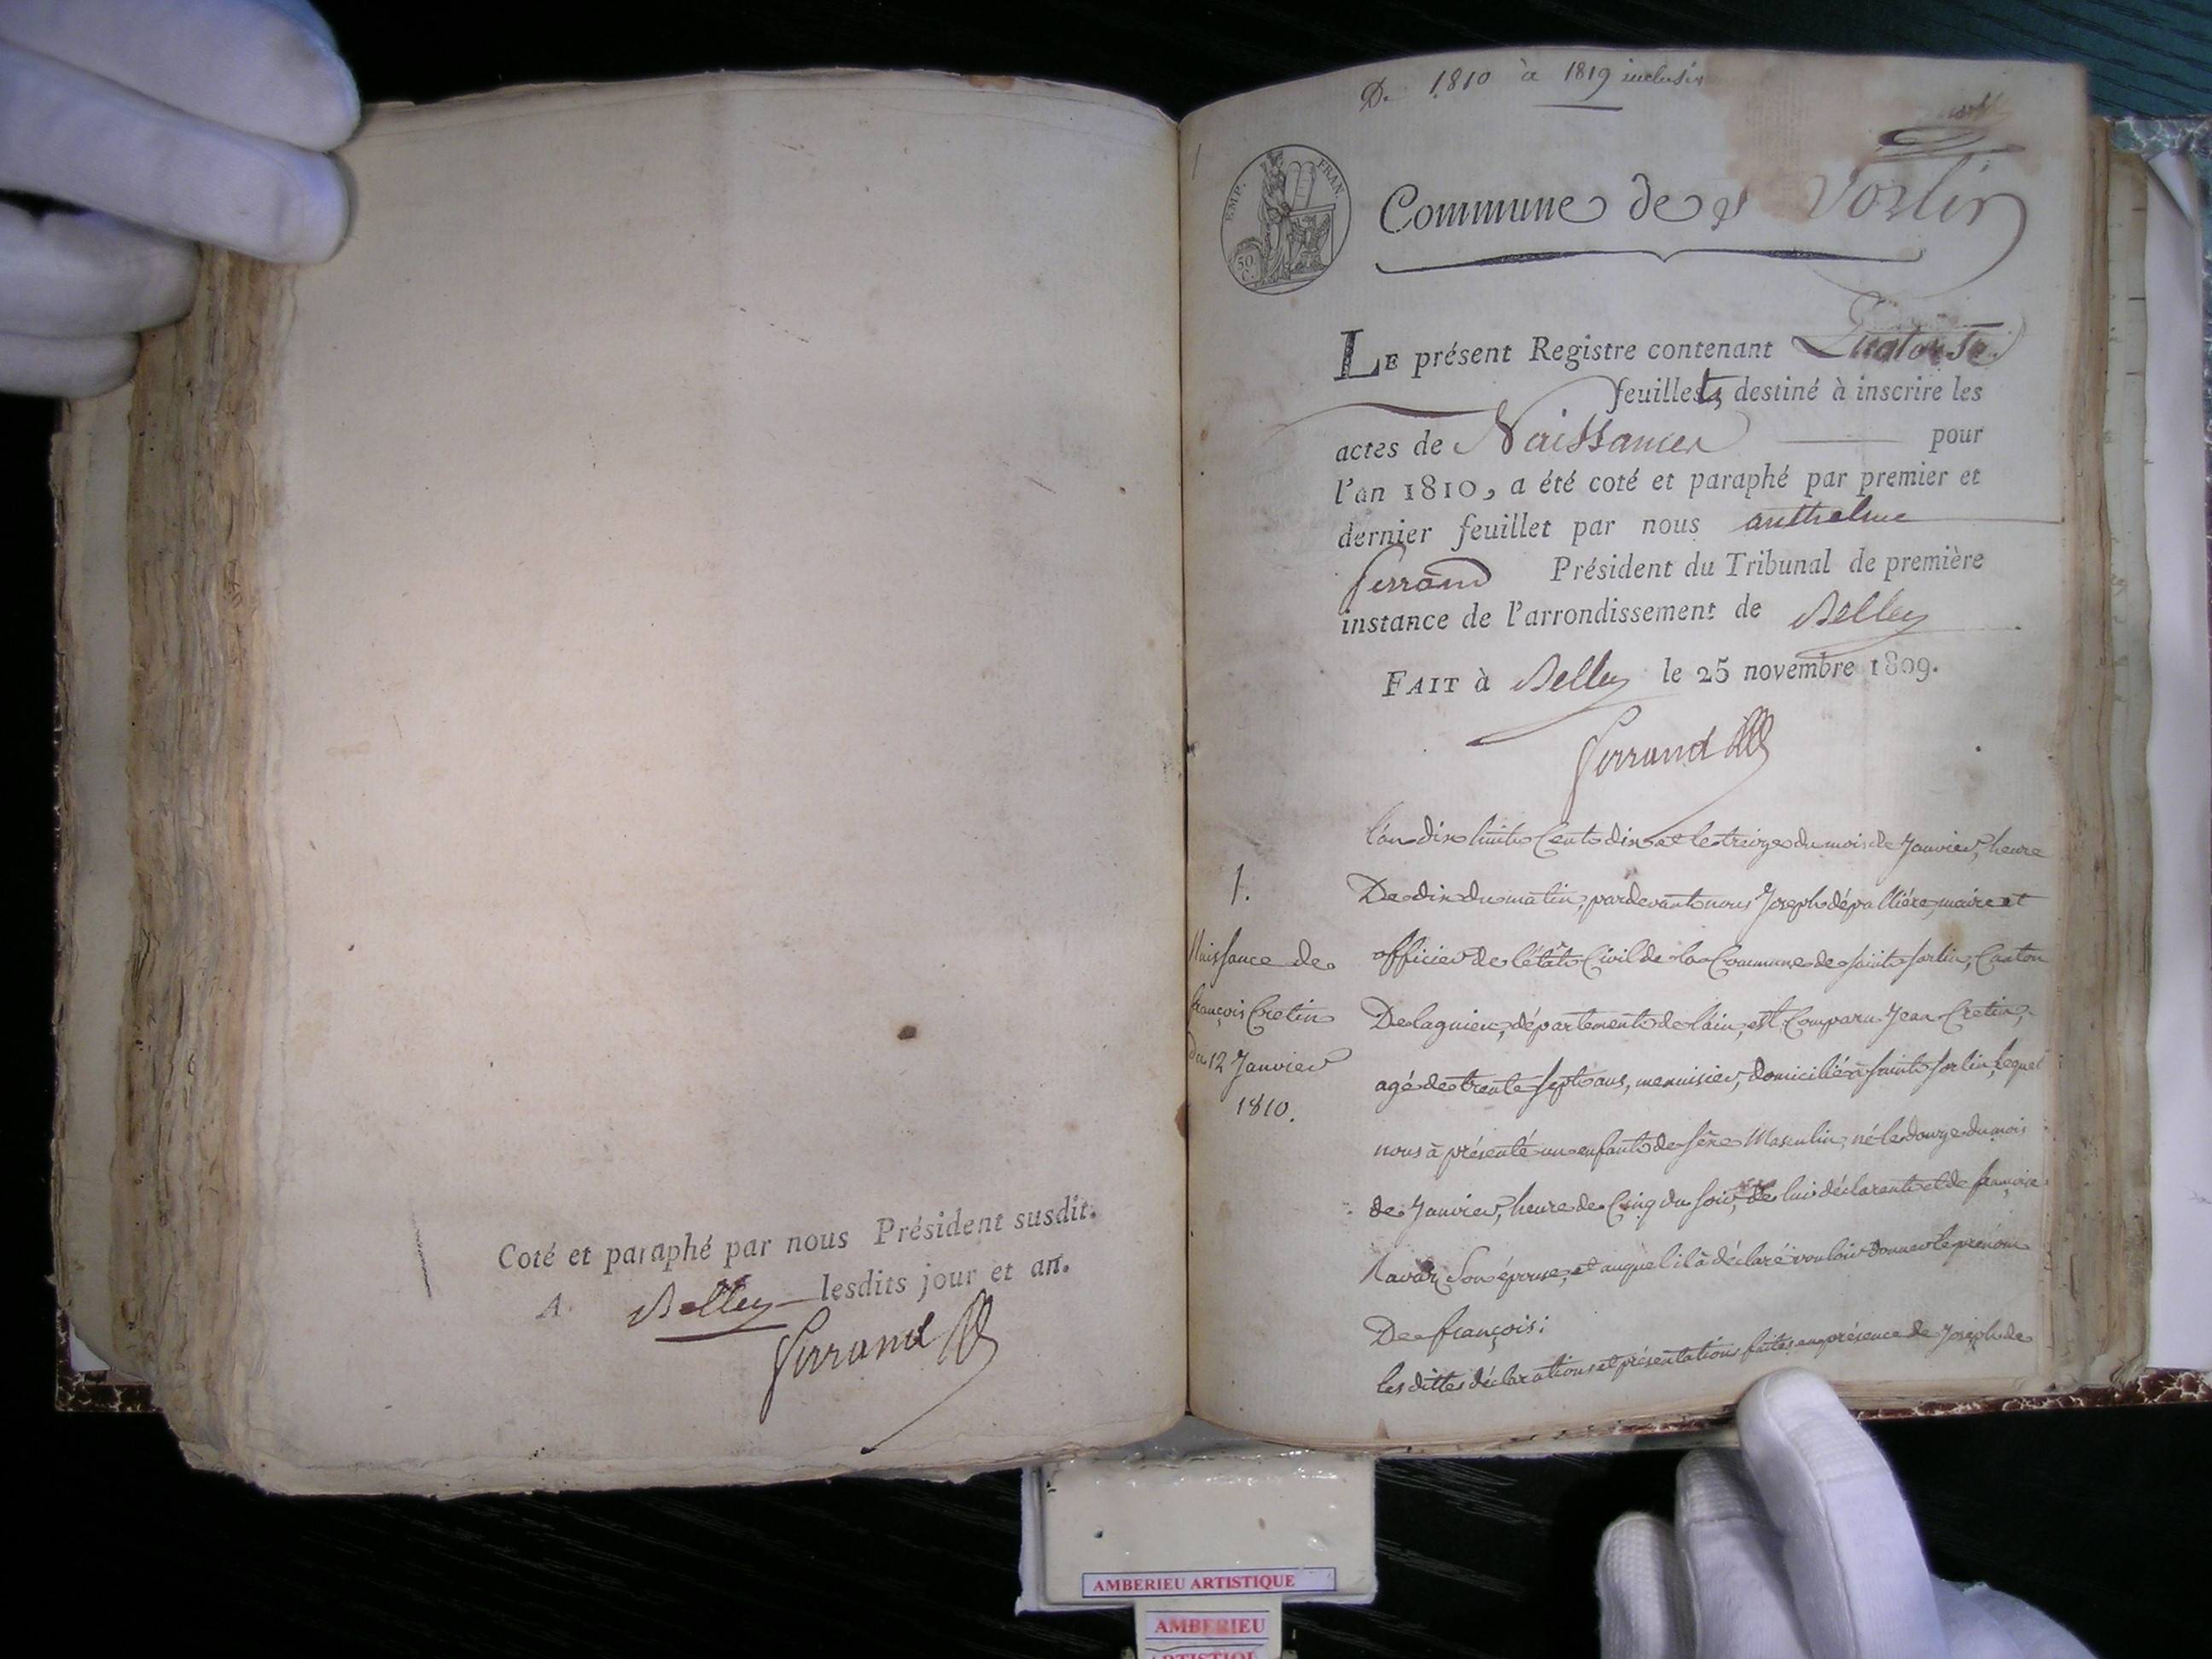 Coté et paraphé par nous Président susdit.
A Belley lesdits jour et an.
Ferrand
De 1810 à 1819 inclusiv
1
EMP. FRAN.
50
C.
Commune de St Sorlin
LE présent Registre contenant Quatorze
feuillets, destiné à inscrire les
actes de Naissances pour
l'an 1810, a été coté et paraphé par premier et
dernier feuillet par nous anthelme
ferrand Président du Tribunal de première
instance de l'arrondissement de Belley
FAIT à Belley le 25 novembre 1809.
Ferrand
1.
Naissance de
françois Cretin
du 12 Janvier
1810.
l'an dix huit Cent dix et le treize du mois de Janvier, heure
De dix du matin, pardevant nous Joseph dépallière, maire et
officier de l'état Civil de la Commune de saint Sorlin, Canton
De lagnieu, département de l'ain, est Comparu Jean Cretin,
agé de trente sept ans, menuisier, domicilié à saint Sorlin, lequel
nous à présenté un enfant de sexe Masculin, né le douze du mois
de Janvier, heure de Cinq du soir, de lui déclarant et de françoise
Ravaz son épouse, et auquel il à déclaré vouloir donner le prénom
De françois;
les dittes déclarations et présentations faites en présence de Joseph de
AMBERIEU ARTISTIQUE
AMBERIEU
ARTISTIQUE